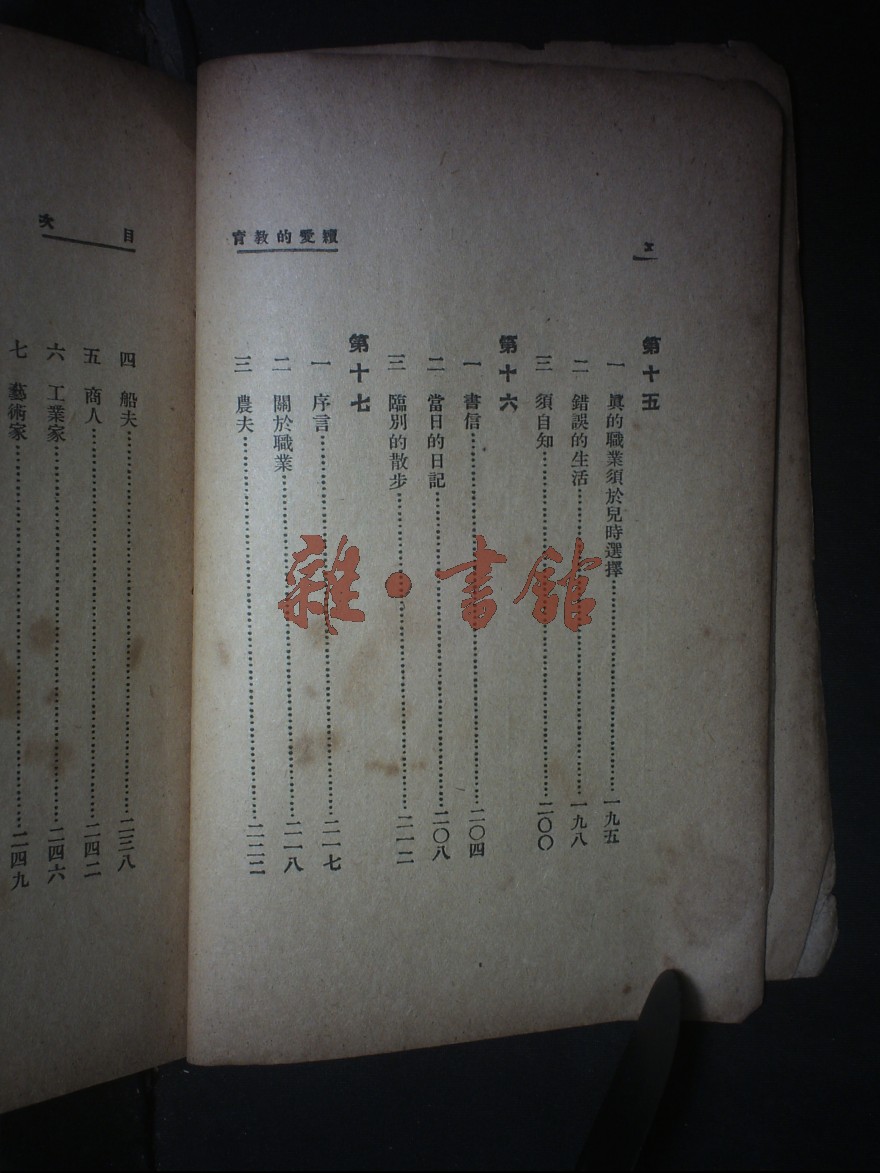 續愛的教育
第十五
一 眞的職業須於兒時選擇……一九五
二 錯誤的生活……一九八
三 須自知……二〇〇
第十六
一 書信……二〇四
二 當日的日記……二〇八
三 臨別的散步……二一二
第十七
一 序言……二一七
二 關於職業……二一八
三 農夫……二二二
目次
四 船夫……二三八
五 商人……二四二
六 工業家……二四六
七 藝術家……二四九
雜·書館